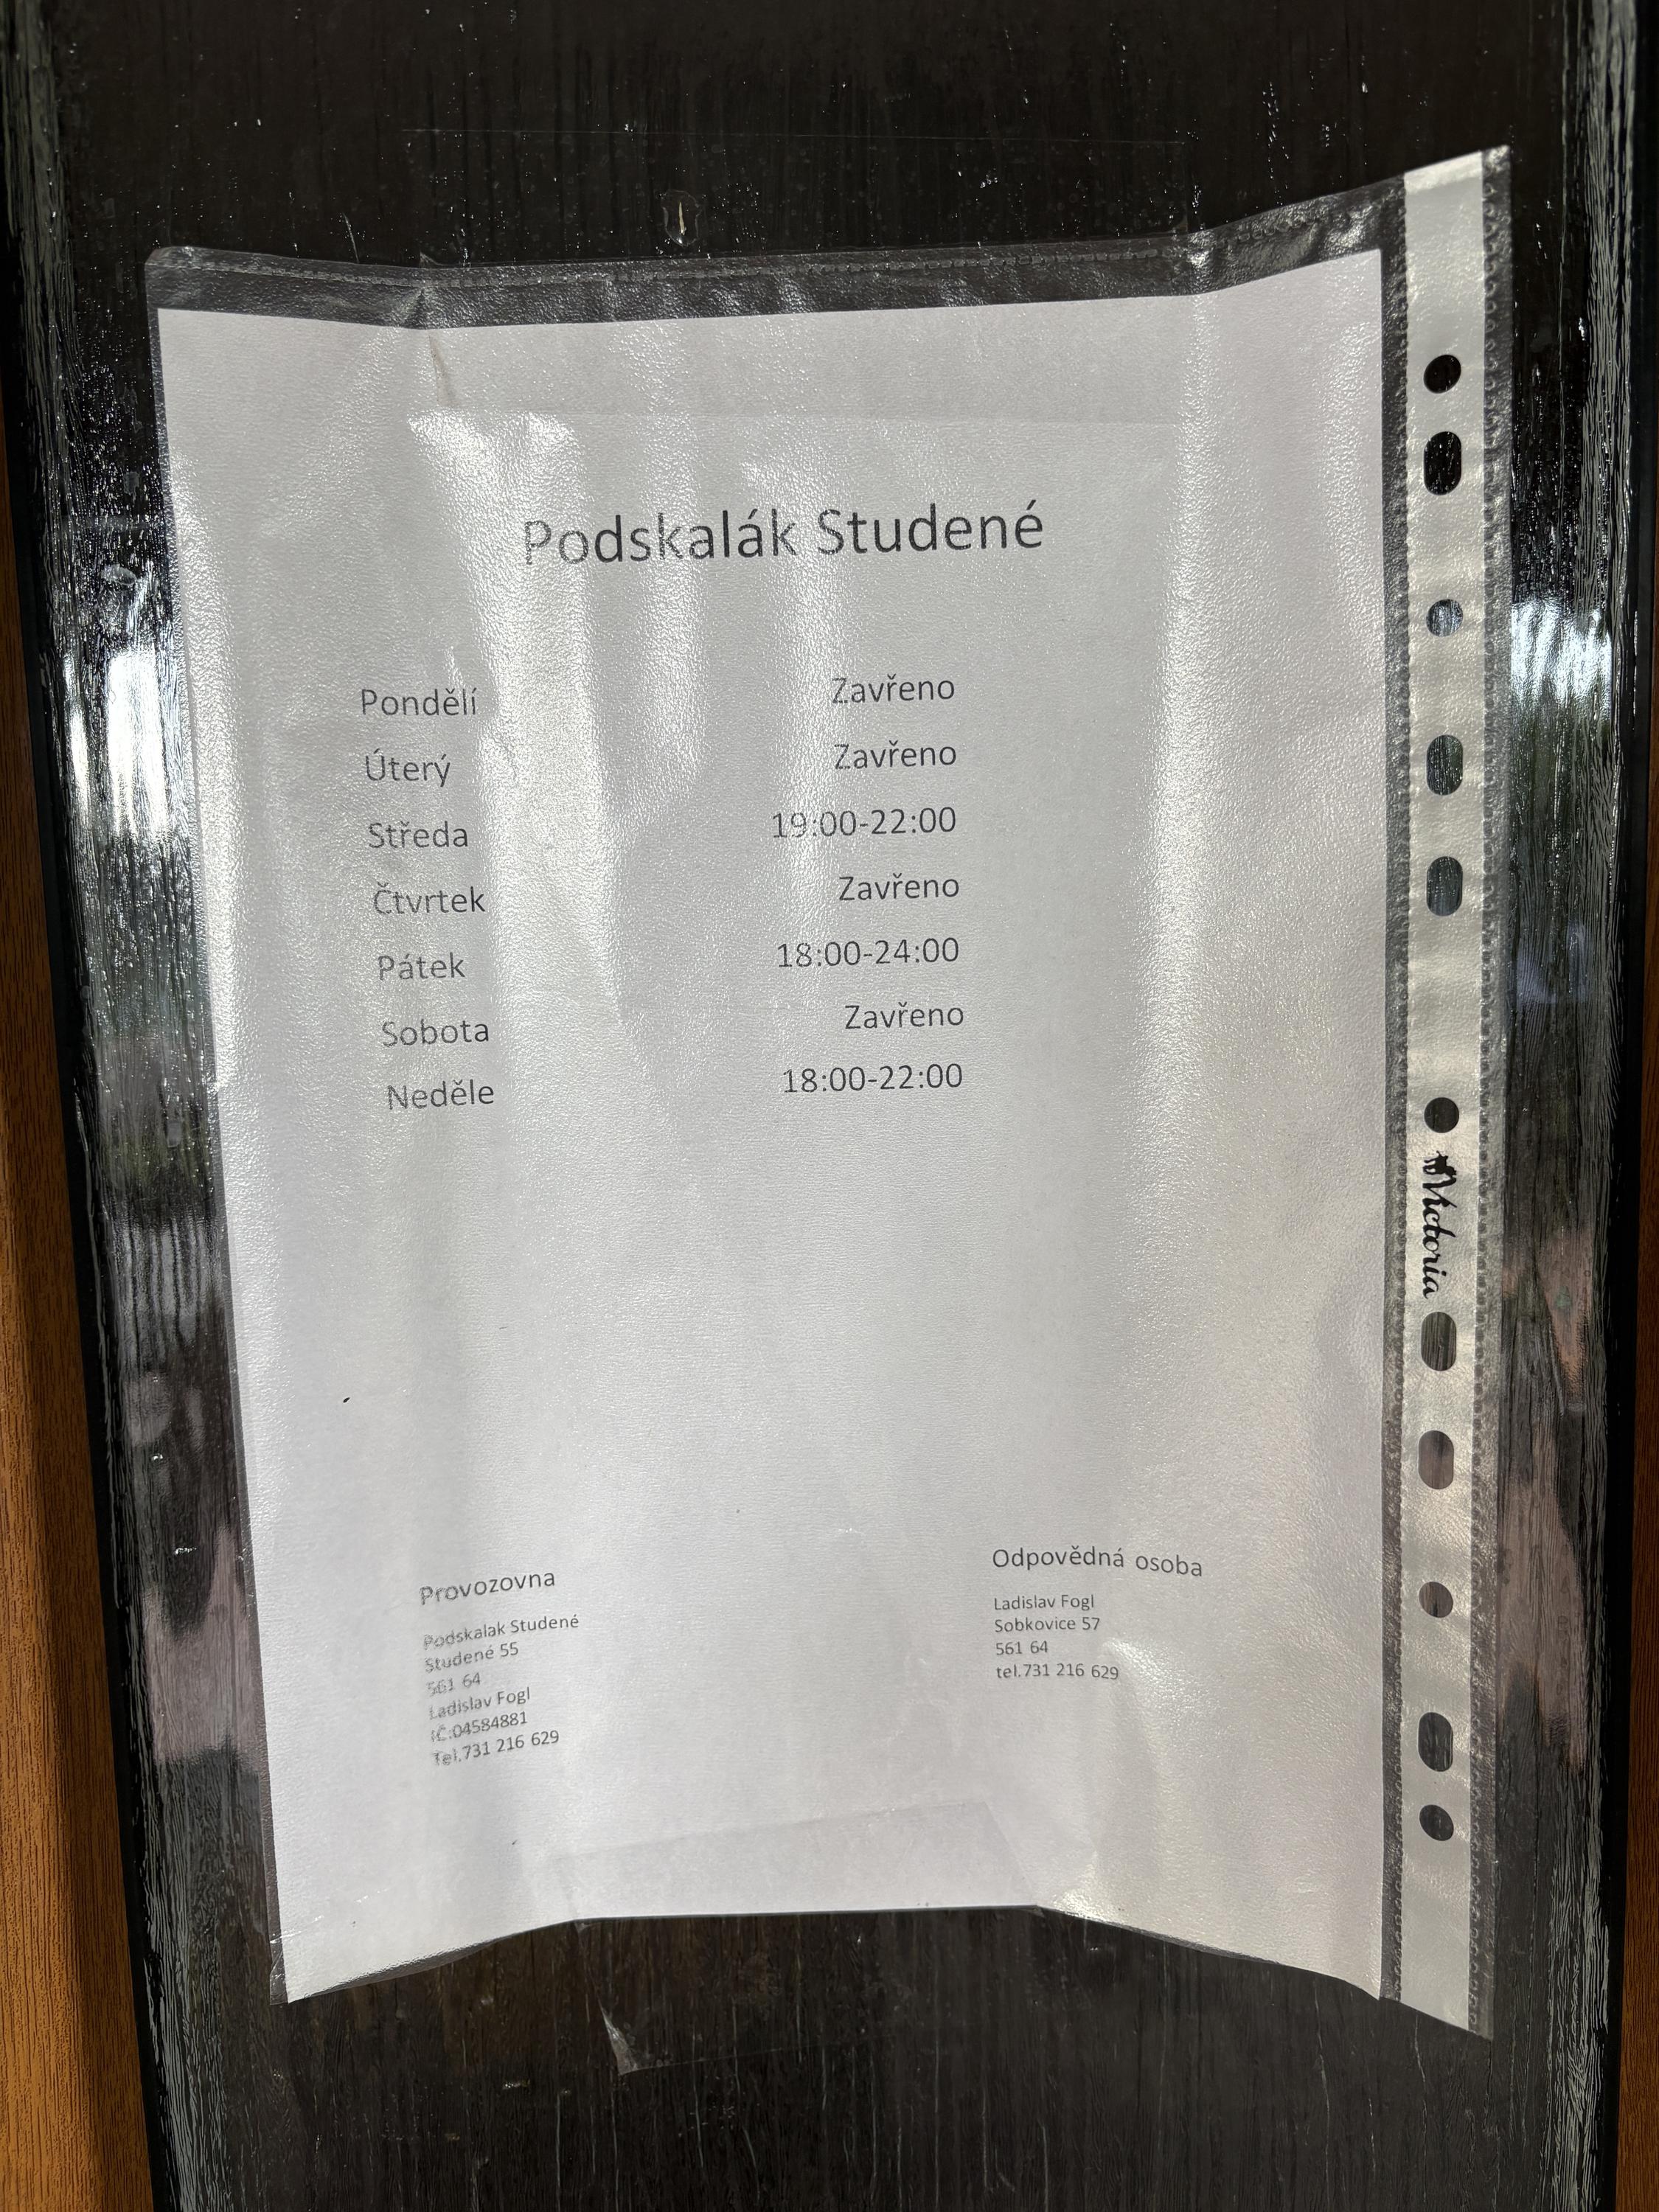 Podskalák Studené
Pondělí Zavřeno
Úterý Zavřeno
Středa 19:00-22:00
Čtvrtek Zavřeno
Pátek 18:00-24:00
Sobota Zavřeno
Neděle 18:00-22:00
Provozovna
Podskalak Studené
Studené 55
561 64
Ladislav Fogl
IČ:04584881
Tel.731 216 629
Odpovědná osoba
Ladislav Fogl
Sobkovice 57
561 64
tel.731 216 629
Victoria